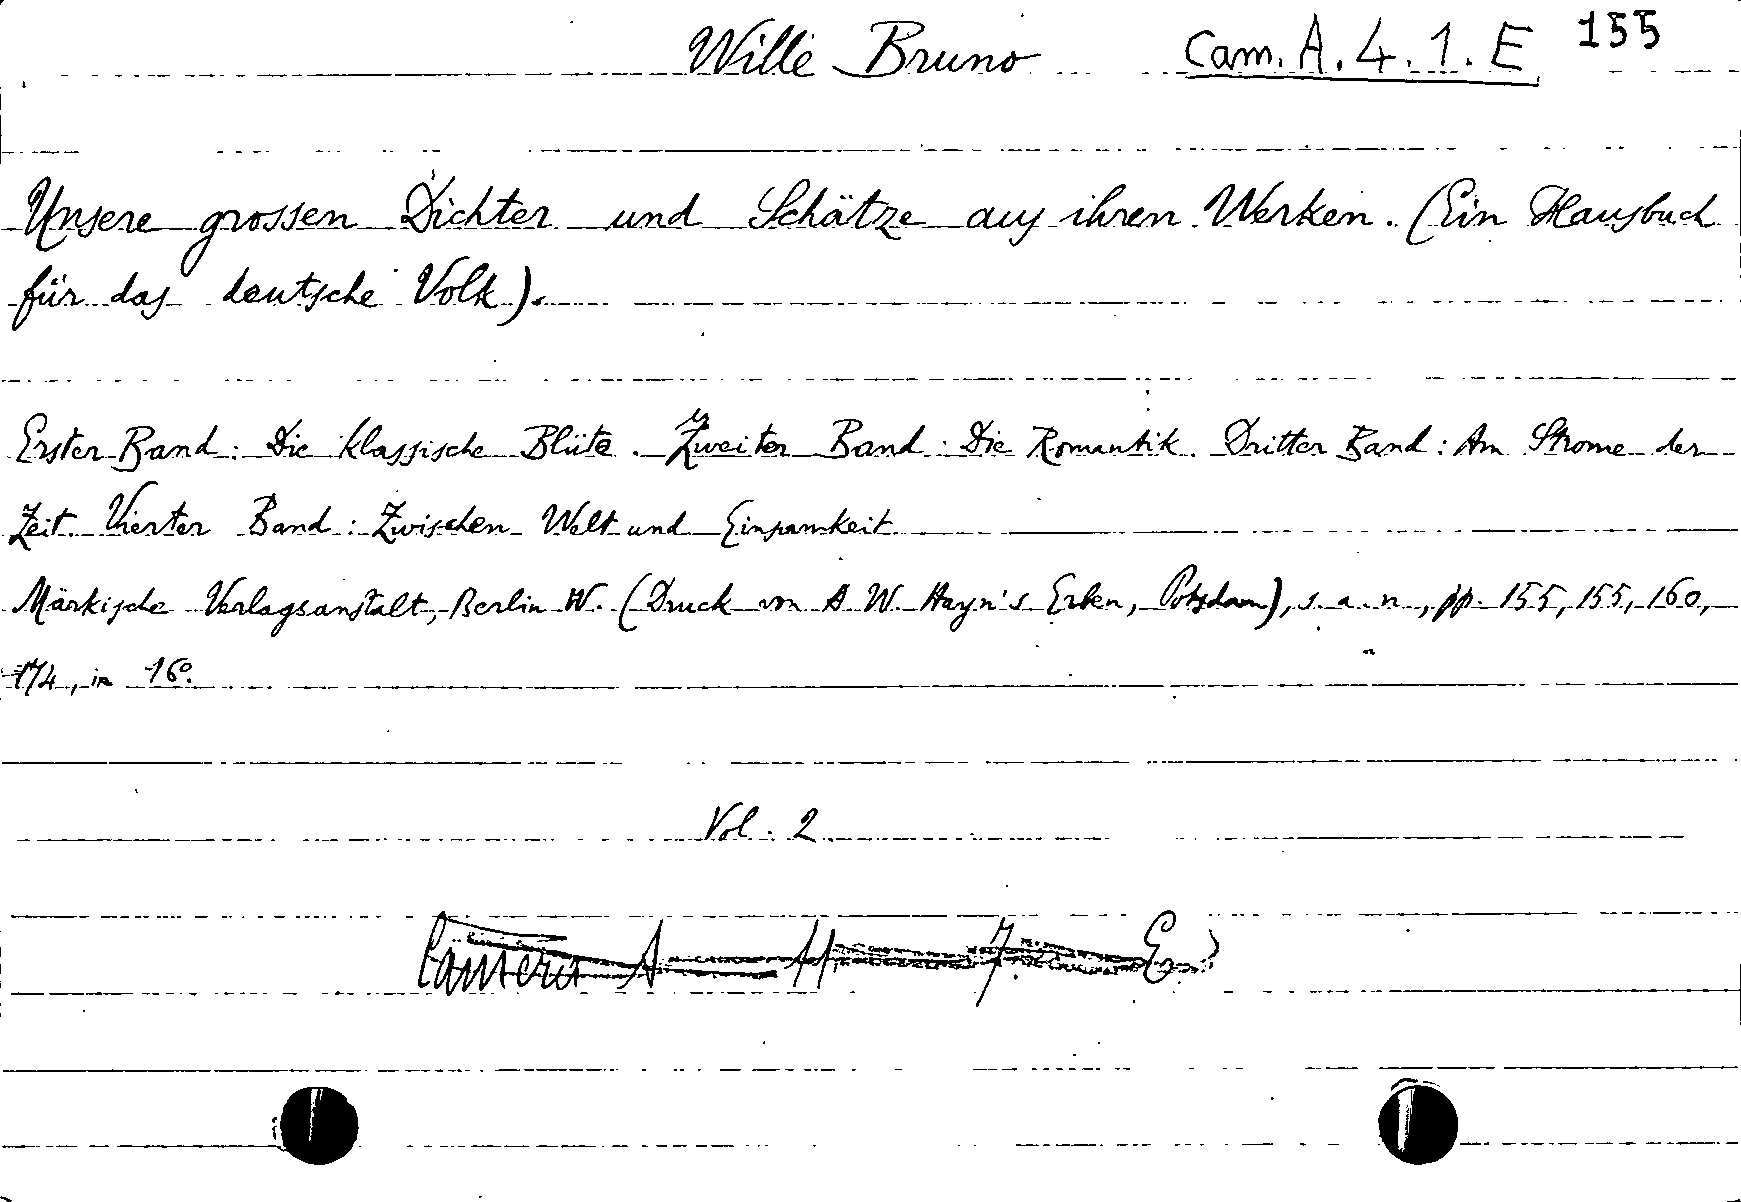 Wille Bruno Cam. A. 4. 1. E 155
Unsere grossen Dichter und Schätze aus ihren Werken. (Ein Hausbuch
für das deutsche Volk).
Erster Band: Die klassische Blüte. Zweiter Band: Die Romantik. Dritter Band: Am Strome der
Zeit. Vierter Band: Zwischen Welt und Einsamkeit
Märkische Verlagsanstalt, Berlin W. (Druck von A. W. Hayn's Erben, Potsdam), s. a. n., pp. 155, 155, 160,
174, in 16°.
Vol. 2
Camera A